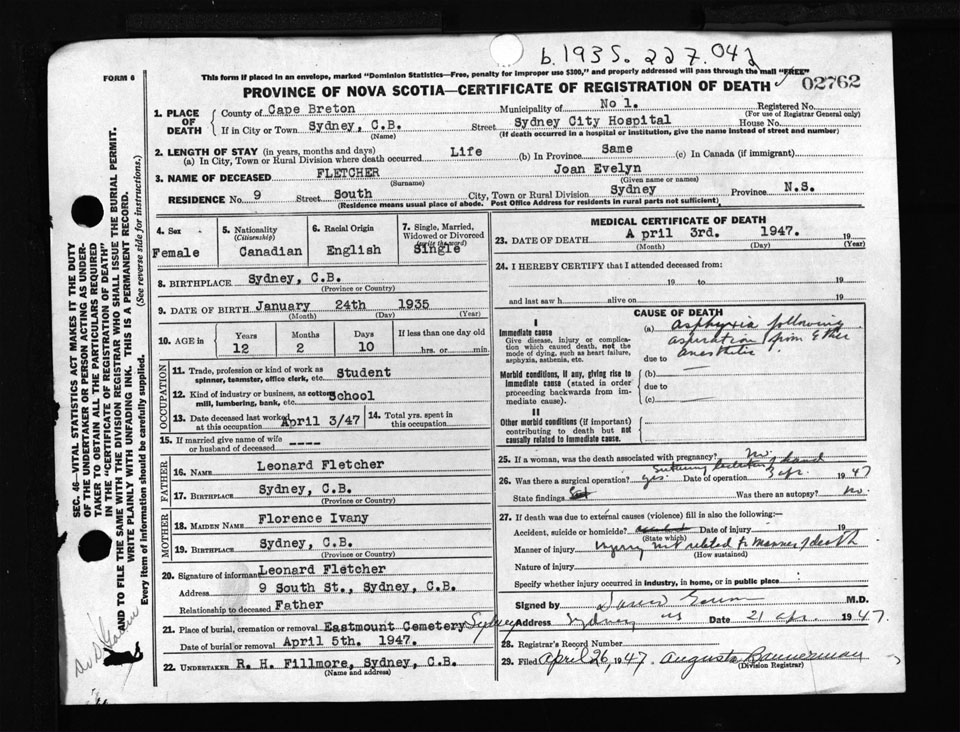 b. 1935. 227.042
FORM 6
This form if placed in an envelope, marked "Dominion Statistics—Free, penalty for improper use $300," and properly addressed will pass through the mail "FREE"
02762
PROVINCE OF NOVA SCOTIA—CERTIFICATE OF REGISTRATION OF DEATH
1. PLACE OF DEATH
County of Cape Breton Municipality of No 1. Registered No.
(For use of Registrar General only)
If in City or Town Sydney, C.B. Street Sydney City Hospital House No.
(Name) (If death occurred in a hospital or institution, give the name instead of street and number)
2. LENGTH OF STAY (in years, months and days)
(a) In City, Town or Rural Division where death occurred Life (b) In Province Same (c) In Canada (if immigrant)
3. NAME OF DECEASED FLETCHER Joan Evelyn
(Surname) (Given name or names)
RESIDENCE No. 9 Street South City, Town or Rural Division Sydney Province N.S.
(Residence means usual place of abode. Post Office Address for residents in rural parts not sufficient)
4. Sex
Female
5. Nationality
(Citizenship)
Canadian
6. Racial Origin
English
7. Single, Married, Widowed or Divorced
(write the word)
Single
8. BIRTHPLACE Sydney, C.B.
(Province or Country)
9. DATE OF BIRTH January 24th 1935
(Month) (Day) (Year)
10. AGE in
Years Months Days If less than one day old
12 2 10 hrs. or min.
OCCUPATION
11. Trade, profession or kind of work as spinner, teamster, office clerk, etc. Student
12. Kind of industry or business, as cotton mill, lumbering, bank, etc. School
13. Date deceased last worked at this occupation April 3/47
14. Total yrs. spent in this occupation
15. If married give name of wife or husband of deceased ----
FATHER
16. NAME Leonard Fletcher
17. BIRTHPLACE Sydney, C.B.
(Province or Country)
MOTHER
18. MAIDEN NAME Florence Ivany
19. BIRTHPLACE Sydney, C.B.
(Province or Country)
20. Signature of informant Leonard Fletcher
Address 9 South St., Sydney, C.B.
Relationship to deceased Father
21. Place of burial, cremation or removal Eastmount Cemetery Sydney
Date of burial or removal April 5th. 1947.
22. UNDERTAKER R. H. Fillmore, Sydney, C.B.
(Name and address)
MEDICAL CERTIFICATE OF DEATH
23. DATE OF DEATH April 3rd. 1947. 19
(Month) (Day) (Year)
24. I HEREBY CERTIFY that I attended deceased from:
19 to 19
and last saw h alive on 19
CAUSE OF DEATH
I
Immediate cause
Give disease, injury or complication which caused death, not the mode of dying, such as heart failure, asphyxia, asthenia, etc.
(a) Asphyxia following
aspiration from Ether
due to anesthetic
Morbid conditions, if any, giving rise to immediate cause (stated in order proceeding backwards from immediate cause).
(b)
due to
(c)
II
Other morbid conditions (if important) contributing to death but not causally related to immediate cause.
25. If a woman, was the death associated with pregnancy? No.
Suturing hand
26. Was there surgical operation? yes. Date of operation 3 apr. 1947
State findings Was there an autopsy? no.
27. If death was due to external causes (violence) fill in also the following:
Accident, suicide or homicide? Date of injury 19
(State which)
Manner of injury Injury not related to manner of death
(How sustained)
Nature of injury
Specify whether injury occurred in industry, in home, or in public place
Signed by M.D.
Address Sydney NS Date 21 apr. 1947
28. Registrar's Record Number
29. Filed April 26, 1947. Augusta Bannerman
(Division Registrar)
SEC. 46—VITAL STATISTICS ACT MAKES IT THE DUTY
OF THE UNDERTAKER OR PERSON ACTING AS UNDERTAKER TO OBTAIN ALL THE PARTICULARS REQUIRED
IN THE "CERTIFICATE OF REGISTRATION OF DEATH"
AND TO FILE THE SAME WITH THE DIVISION REGISTRAR WHO SHALL ISSUE THE BURIAL PERMIT.
WRITE PLAINLY WITH UNFADING INK. THIS IS A PERMANENT RECORD.
Every item of information should be carefully supplied. (See reverse side for instructions.)